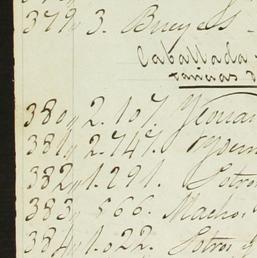 379 3. Bueyes
Caballada
380,, 2.107. Yeguas
381,, 2.747.
382,, 1.291. Potros
383,, 566. Machos
384,, 1.022. Potros